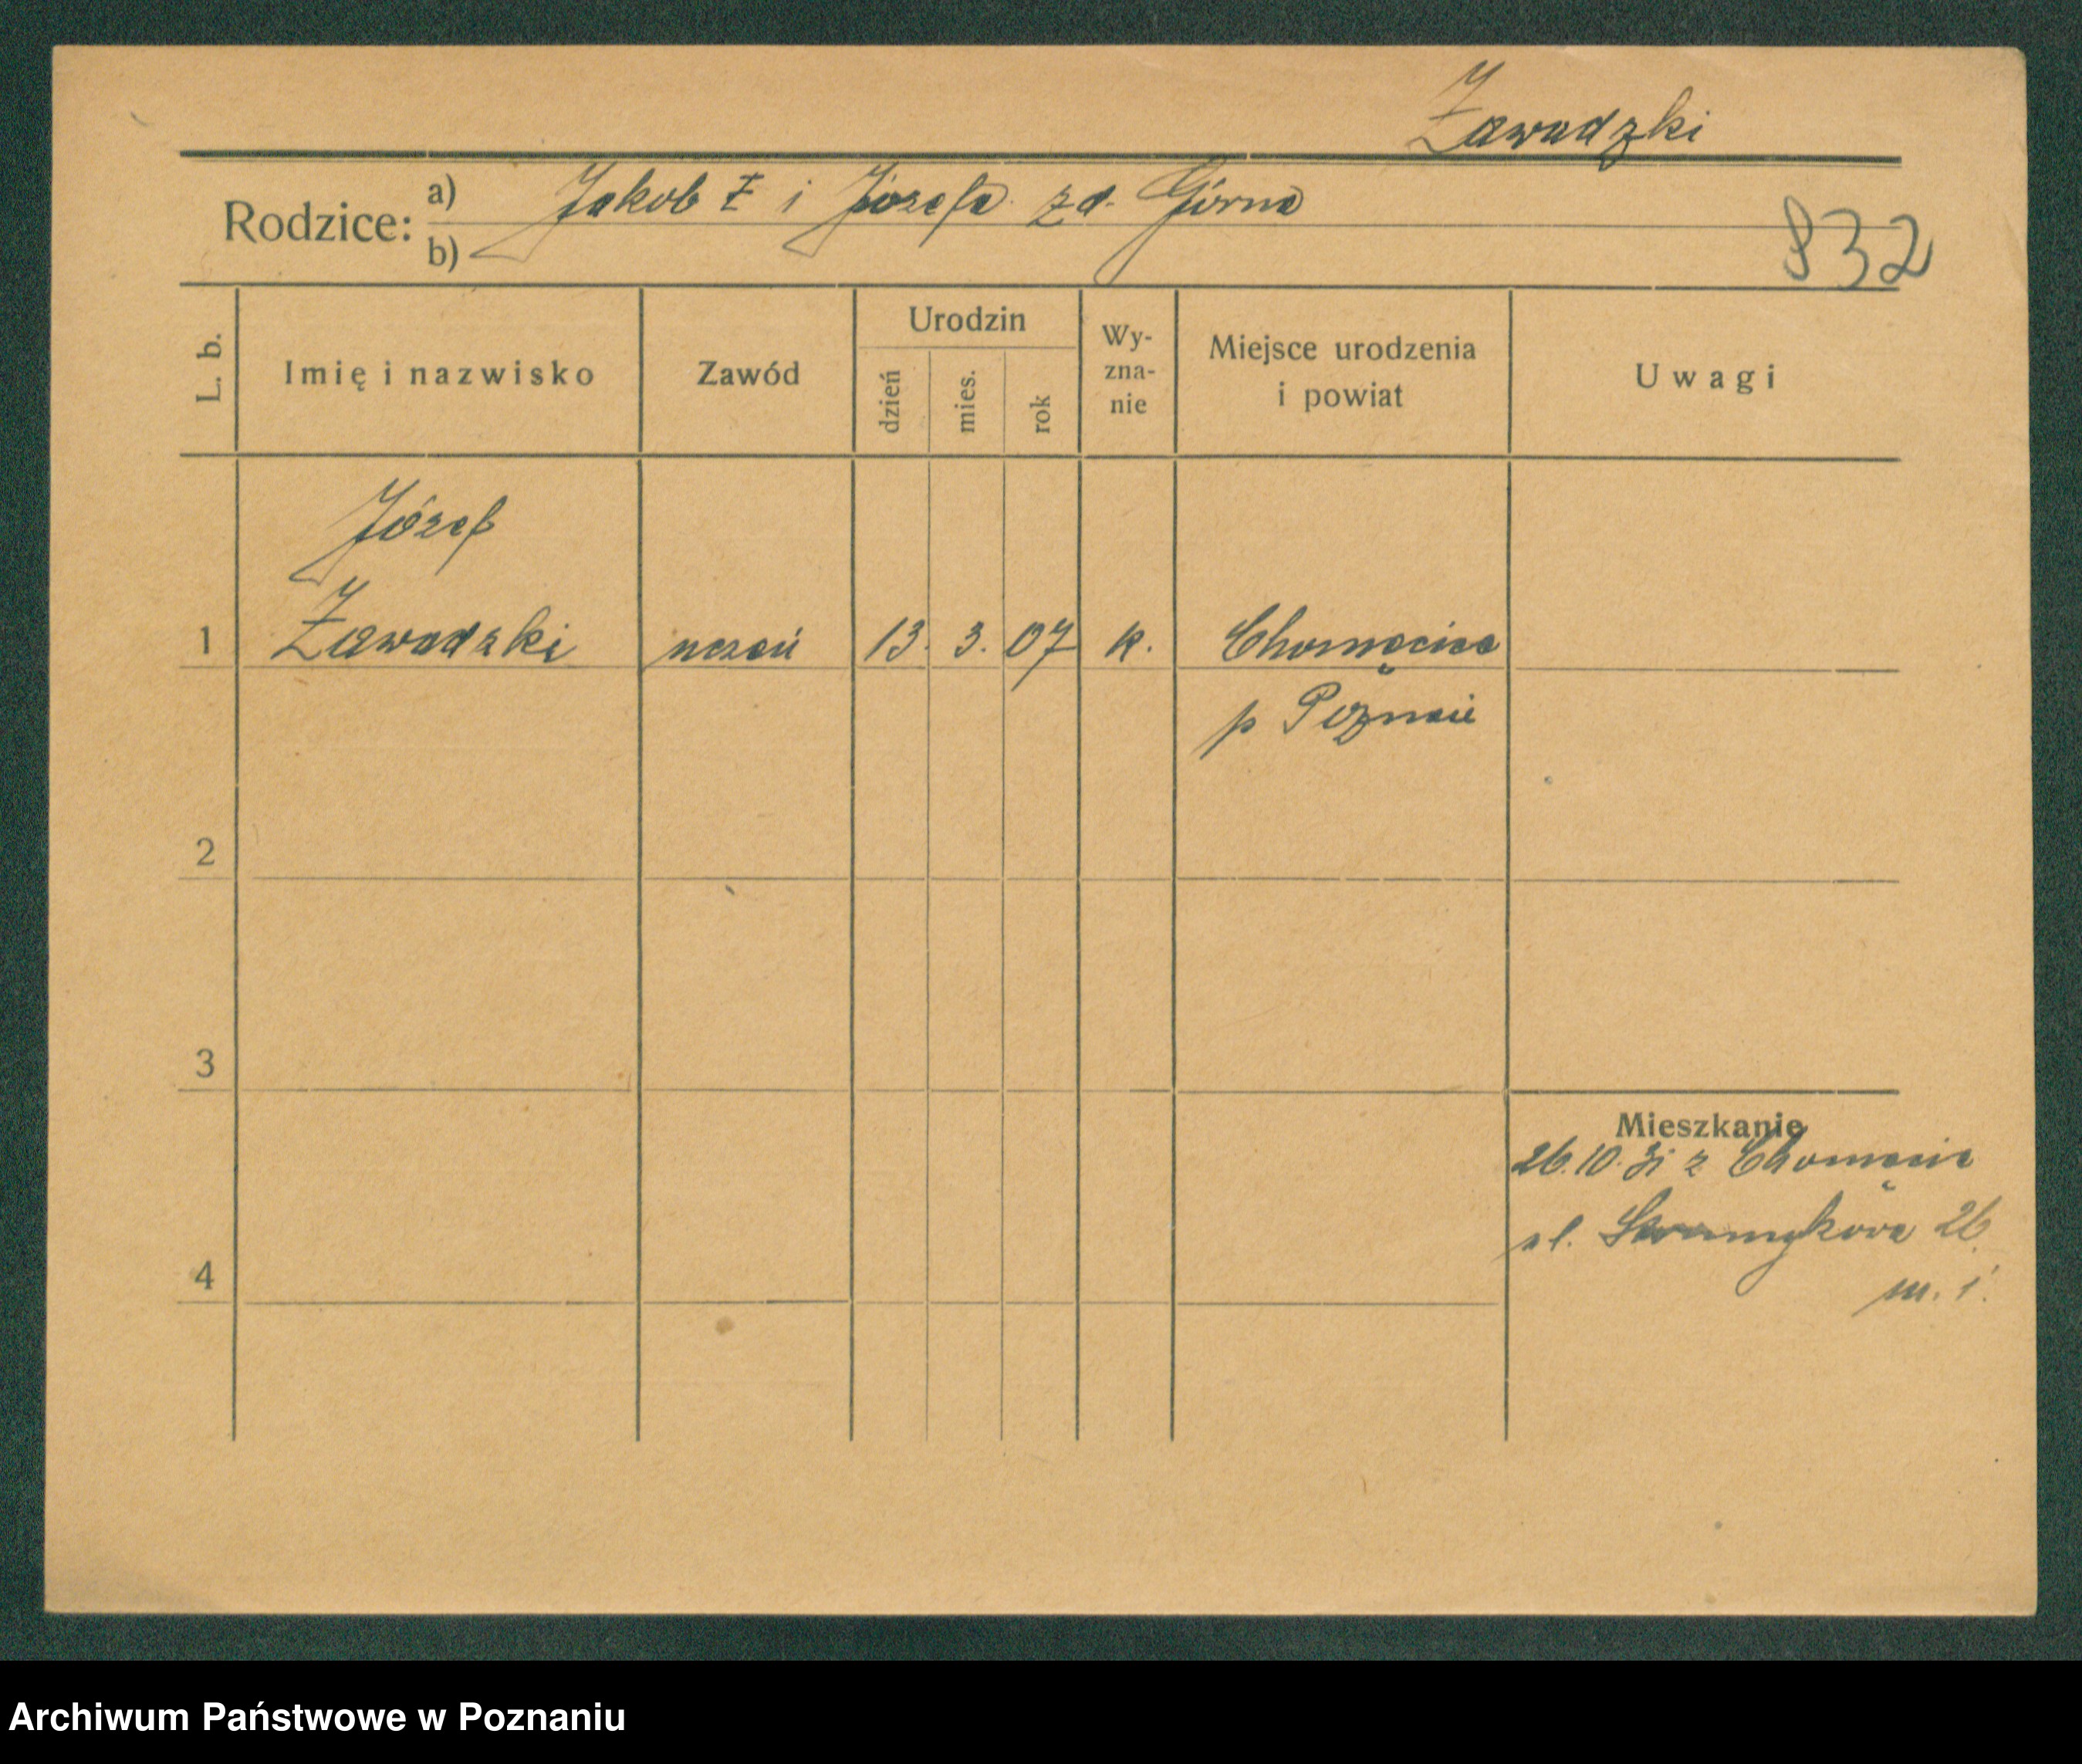 Zawadzki
Rodzice: a) Jakob Z i Józefa zd. Górna
b)
832
L. b.
Imię i nazwisko
Zawód
Urodzin
dzień
mies.
rok
Wy-
zna-
nie
Miejsce urodzenia
i powiat
Uwagi
Józef
1 Zawadzki uczeń 13. 3. 07 k. Chomęcice
p Poznań
2
3
Mieszkanie
26. 10. 31 z Chomęcic
ul. 26
4
m. 1.
Archiwum Państwowe w Poznaniu